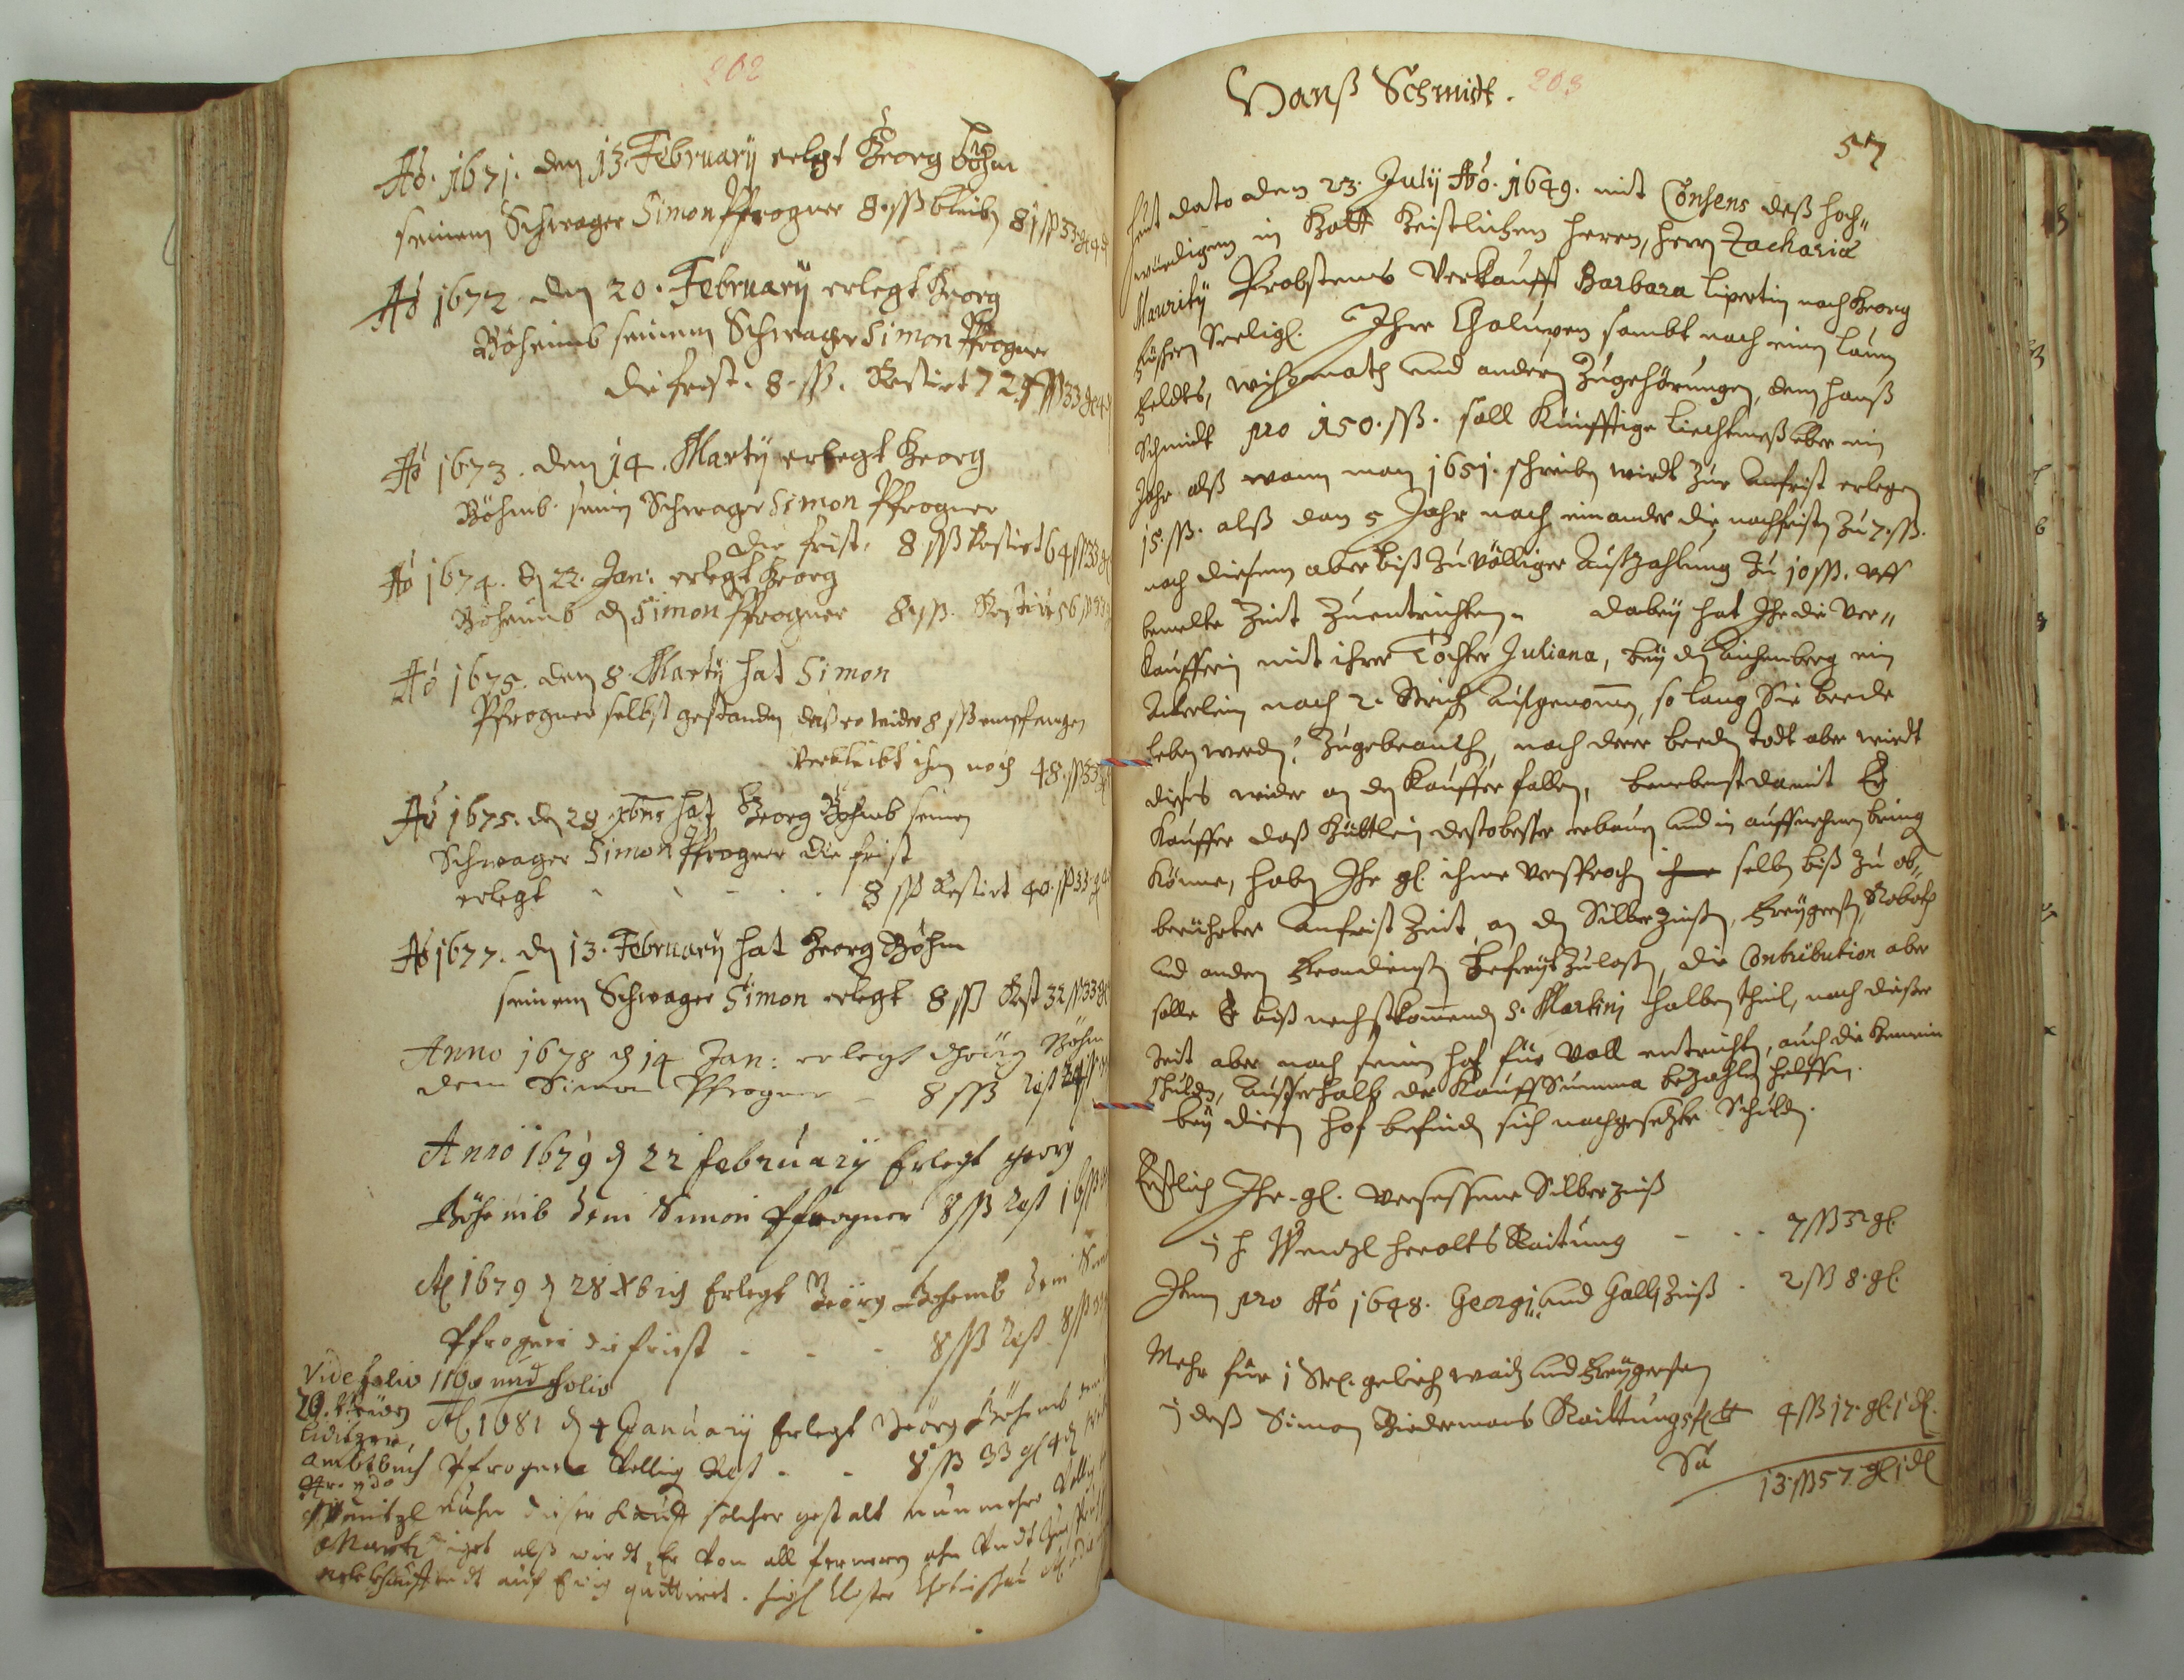 202
Aõ. 1671. den 13. February erlegt Georg Böhm
seinem Schwager Simon Pfrogner 8. ßß bleibt 81 ßß 33 gl 4
Aõ 1672. den 20. February erlegt Georg
Böheimb seinem Schwager Simon Pfrogner
die frist. 8. ßß. Restirt 72 ßß 33 gl 4
Aõ 1673. den 14. Marty erlegt Georg
Böhmb. seinem Schwager Simon Pfrogner
die frist. 8 ßß Restirt 64 ßß 33 gl
Aõ 1674. d 22. Jan: erlegt Georg
Böheimb d Simon Pfrogner 8 ßß. Restirt 56 ßß 33
Aõ 1675. den 8. Marty hat Simon
Pfrogner selbst gestanden, daß er wider 8 ßß empfangen
Verbleibt ihm noch 48. ßß 33 gl
Aõ 1675. den 28. xbris hat Georg Böhmb seinen
Schwager Simon Pfrogner die frist
erlegt - - - - 8 ßß Restirt 40. ßß 33 gl
Aõ 1677. den 13. February hat Georg Böhm
seinem Schwager Simon erlegt 8 ßß Rest 32 ßß 33 gl
Anno 1678 d 14 Jan: erlegt Georg Böhm
dem Simon Pfrogner - 8 ßß Rest 24 ßß
Anno 1679 d 22 february Erlegt georg
Böhemb dem Simon Pfrogner 8 ßß Rest 16 ßß
Aõ 1679 d 28 Xbris Erlegt Georg Bohemb dem
Pfrogner die frist - - - 8 ßß Rest 8 ßß
Vide folio 1160 und folio
Aõ 1681 d 4 January Erlegt Georg Böhemb
Ambtbuch Pfrogner Völlig Rest - - 8 ßß 33 gl 4 d
Wentzl dieser Kauff solcher gestalt nunmehro Völlig
alß wirdt Er von all fernern
auf Ewig quittiret.
Hanß Schmidt. 203
57
Heut dato den 23. July Aõ. 1649. mit Consens deß Hoch"
würdigen in Gott Geistlichen Herrn, Herrn Zachariæ
Maurity Probstens Verkaufft Barbara Lipertin nach Georg
Seeligl. Ihre Chaluppen sambt noch einem
Feldts, wißmath und andern Zugehörungen, dem Hanß
Schmidt pro 150. ßß. soll Künfftige Liechtmeß über ein
Jahr alß wann man 1651. schreiben wirdt zur Anfrist erlegen
15. ßß. alß dan 5 Jahr nach einander die nachfristen zu 7. ßß.
nach diesem aber biß zu völliger Außzahlung zu 10 ßß. uff
bemelte Zeit zuentrichten. Dabey hat Ihr die Ver"
kaufferin mit ihrer Tochter Juliana, bey d ein
Ackerlein nach 2. Strich außgenomen, so lang Sie beede
leben werden, Zugebrauchen, nach derer beeden Todt aber wirdt
dieses wider an den Kauffer fallen, benebenst damit Er
Kauffer daß Güttlein desto besser erbauen und in auffnehmen bringen
könne, haben Ihr gl. ihme versprochen selben biß zu ob"
berührter Anfrist Zeit, an den Silberzinßen, Robath
und andern befreyt zulaßen, die Contribution aber
solle Er biß nechstkomend S. Martini halben theil, nach dieser
Zeit aber nach seinem Hof für Voll entrichten, auch die Gemein
Schulden, Ausserhalb der Kauff Summa bezahlen helffen.
bey diesem Hof befinden sich nachgesetzte Schulden.
Erstlich Ihr. gl. versessene Silberzinß
in H. Wentzl Herolts Raitung - - - 7 ßß 32 gl.
Item pro Aõ 1648. Georgi und Galli Zinß - 2 ßß 8. gl.
Mehr für 1 Str. geliehen und
in deß Simon Biedermans Raittungs 4 ßß 17. gl. 1 d.
Sa
13. ßß 57. gl. 1 d